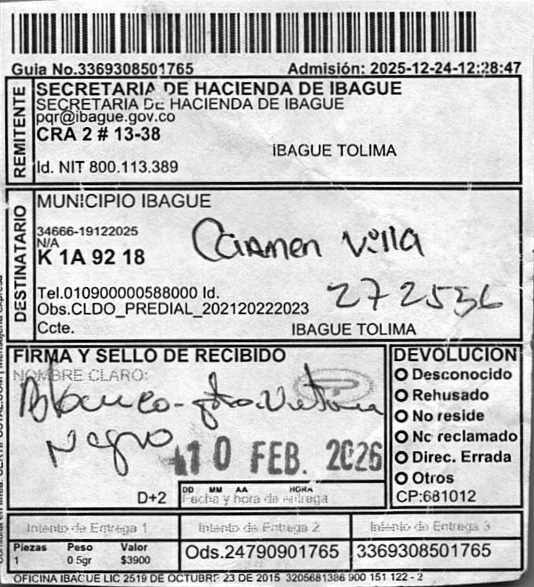 Guia No.3369308501765 Admisión: 2025-12-24-12:28:47
REMITENTE
SECRETARIA DE HACIENDA DE IBAGUE
SECRETARIA DE HACIENDA DE IBAGUE
pqr@ibague.gov.co
CRA 2 # 13-38
IBAGUE TOLIMA
Id. NIT 800.113.389
DESTINATARIO
MUNICIPIO IBAGUE
34666-19122025
N/A
K 1A 92 18
Carmen Villa
Tel.010900000588000 Id.
272556
Obs.CLDO_PREDIAL_202120222023
Ccte. IBAGUE TOLIMA
FIRMA Y SELLO DE RECIBIDO
NOMBRE CLARO:
Blanco
Negro
10 FEB. 2026
D+2
DD MM AA HORA
Fecha y hora de entrega
DEVOLUCION
Desconocido
Rehusado
No reside
No reclamado
Direc. Errada
Otros
CP:681012
Intento de Entrega 1 Intento de Entrega 2 Intento de Entrega 3
Piezas Peso Valor
1 0.5gr $3900
Ods.24790901765 3369308501765
OFICINA IBAGUE LIC 2519 DE OCTUBRE 23 DE 2015 3205681386 900 151 122 - 2